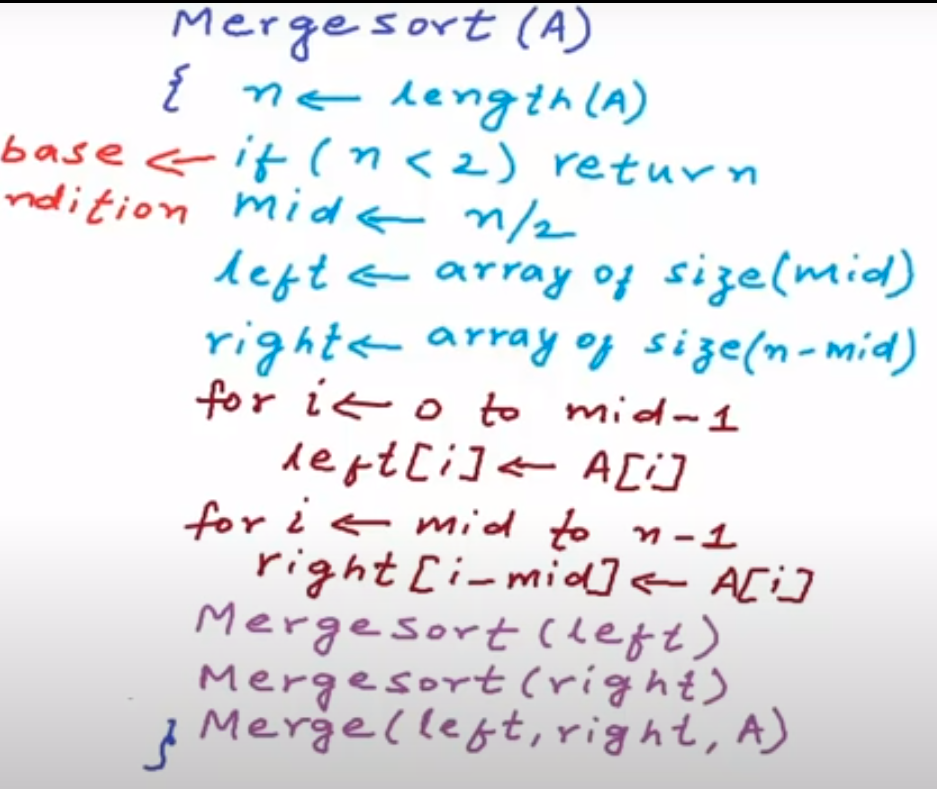 Mergesort (A)
{ n ← length(A)
base ← if (n < 2) return
ndition mid ← n/2
left ← array of size(mid)
right ← array of size(n-mid)
for i ← 0 to mid-1
left[i] ← A[i]
for i ← mid to n-1
right[i-mid] ← A[i]
Mergesort(left)
Mergesort(right)
} Merge(left, right, A)